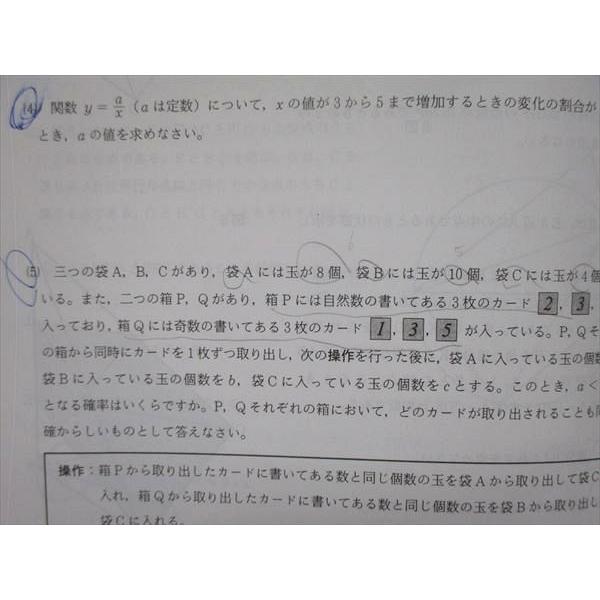 (4) 関数 y = a/x (aは定数) について, xの値が3から5まで増加するときの変化の割合が
とき, aの値を求めなさい。
(5) 三つの袋A, B, Cがあり, 袋Aには玉が8個, 袋Bには玉が10個, 袋Cには玉が4個
いる。また, 二つの箱P, Qがあり, 箱Pには自然数の書いてある3枚のカード 2, 3,
入っており, 箱Qには奇数の書いてある3枚のカード 1, 3, 5 が入っている。P, Qそ
の箱から同時にカードを1枚ずつ取り出し, 次の操作を行った後に, 袋Aに入っている玉の個数
袋Bに入っている玉の個数をb, 袋Cに入っている玉の個数をcとする。このとき, a<
となる確率はいくらですか。P, Qそれぞれの箱において, どのカードが取り出されることも同
確からしいものとして答えなさい。
操作：箱Pから取り出したカードに書いてある数と同じ個数の玉を袋Aから取り出して袋C
入れ, 箱Qから取り出したカードに書いてある数と同じ個数の玉を袋Bから取り出し
袋Cに入れる。